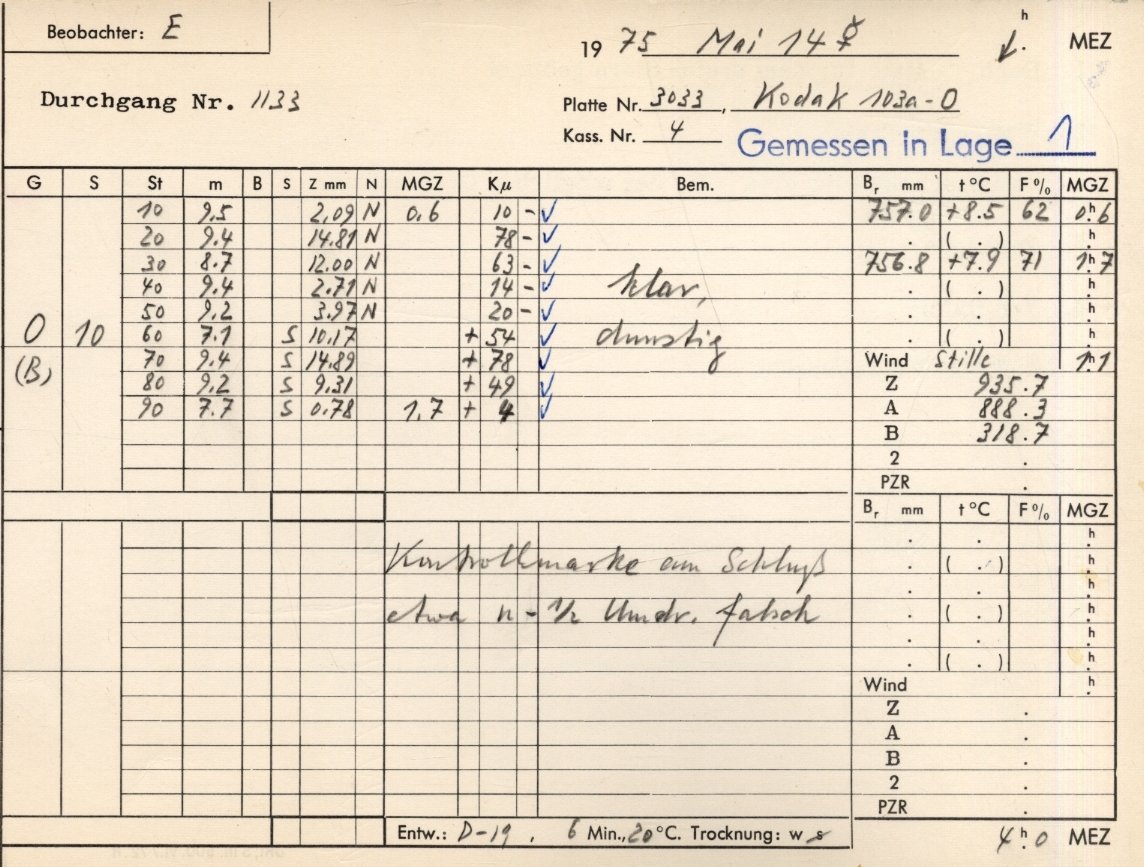 Beobachter: E
19 75 Mai 14 h MEZ
Durchgang Nr. 1133
Platte Nr. 3033, Kodak 103a-O
Kass. Nr. 4
Gemessen in Lage 1
G S St m B S Z mm N MGZ Kμ Bem. Br mm t °C F% MGZ
10 9.5 2.09 N 0.6 10 - ✓ 757.0 +8.5 62 0h.6
20 9.4 14.81 N 78 - ✓ . ( . ) h.
30 8.7 12.00 N 63 - ✓ 756.8 +7.9 71 1h.7
40 9.4 2.71 N 14 - ✓ klar, . ( . ) h.
50 9.2 3.97 N 20 - ✓ . . h.
O 10 60 7.1 S 10.17 + 54 ✓ dunstig . ( . ) h.
(B) 70 9.4 S 14.89 + 78 ✓ Wind Stille 1h.1
80 9.2 S 9.31 + 49 ✓ Z 935.7
90 7.7 S 0.78 1.7 + 4 ✓ A 888.3
B 318.7
2 .
PZR .
Br mm t °C F% MGZ
. . h.
Kontrollmarke am Schluß . ( . ) h.
. . h.
etwa n - 1/2 Umdr. falsch . ( . ) h.
. . h.
. ( . ) h.
Wind h.
Z .
A .
B .
2 .
PZR .
Entw.: D-19, 6 Min., 20°C. Trocknung: w s
4h.0 MEZ